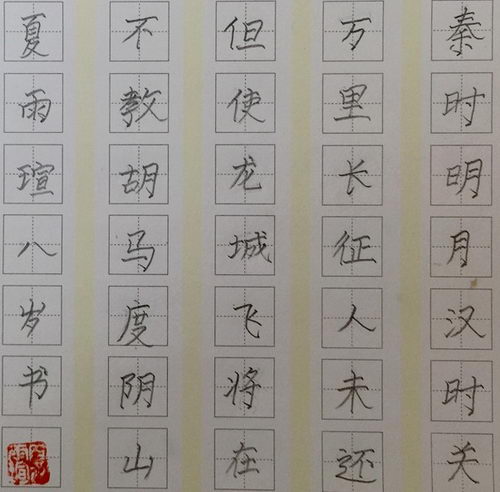 秦时明月汉时关
万里长征人未还
但使龙城飞将在
不教胡马度阴山
夏雨瑄八岁书